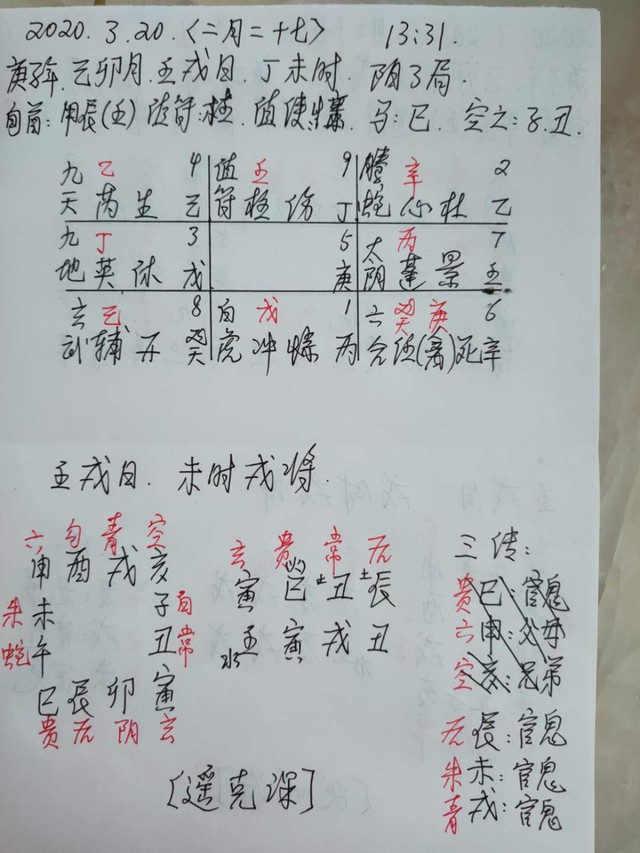 2020.3.20.〈二月二十七〉 13:31.
庚子年.己卯月.壬戌日.丁未时.阴3局.
旬首:甲辰(壬) 值符:柱.值使:惊.马:巳.空亡:子.丑.
九 乙 4 值 壬 9 螣 辛 2
天 芮 生 己 符 柱 伤 丁 蛇 心 杜 乙
九 丁 3 5 太 丙 7
地 英 休 戊 庚 阴 蓬 景 壬
玄 己 8 白 戊 1 六 癸 庚 6
武 辅 开 癸 虎 冲 惊 丙 合 任(禽)死 辛
壬戌日.未时戌将.
六 勾 青 空
申 酉 戌 亥
朱 未 子 白
蛇 午 丑 常
巳 辰 卯 寅
贵 后 阴 玄
玄 贵 常 后
寅 巳 丑 辰
水 壬 寅 戌 丑
三传:
贵 巳:官鬼
六 申:父母
空 亥:兄弟
后 辰:官鬼
朱 未:官鬼
青 戌:官鬼
〔遥克深〕